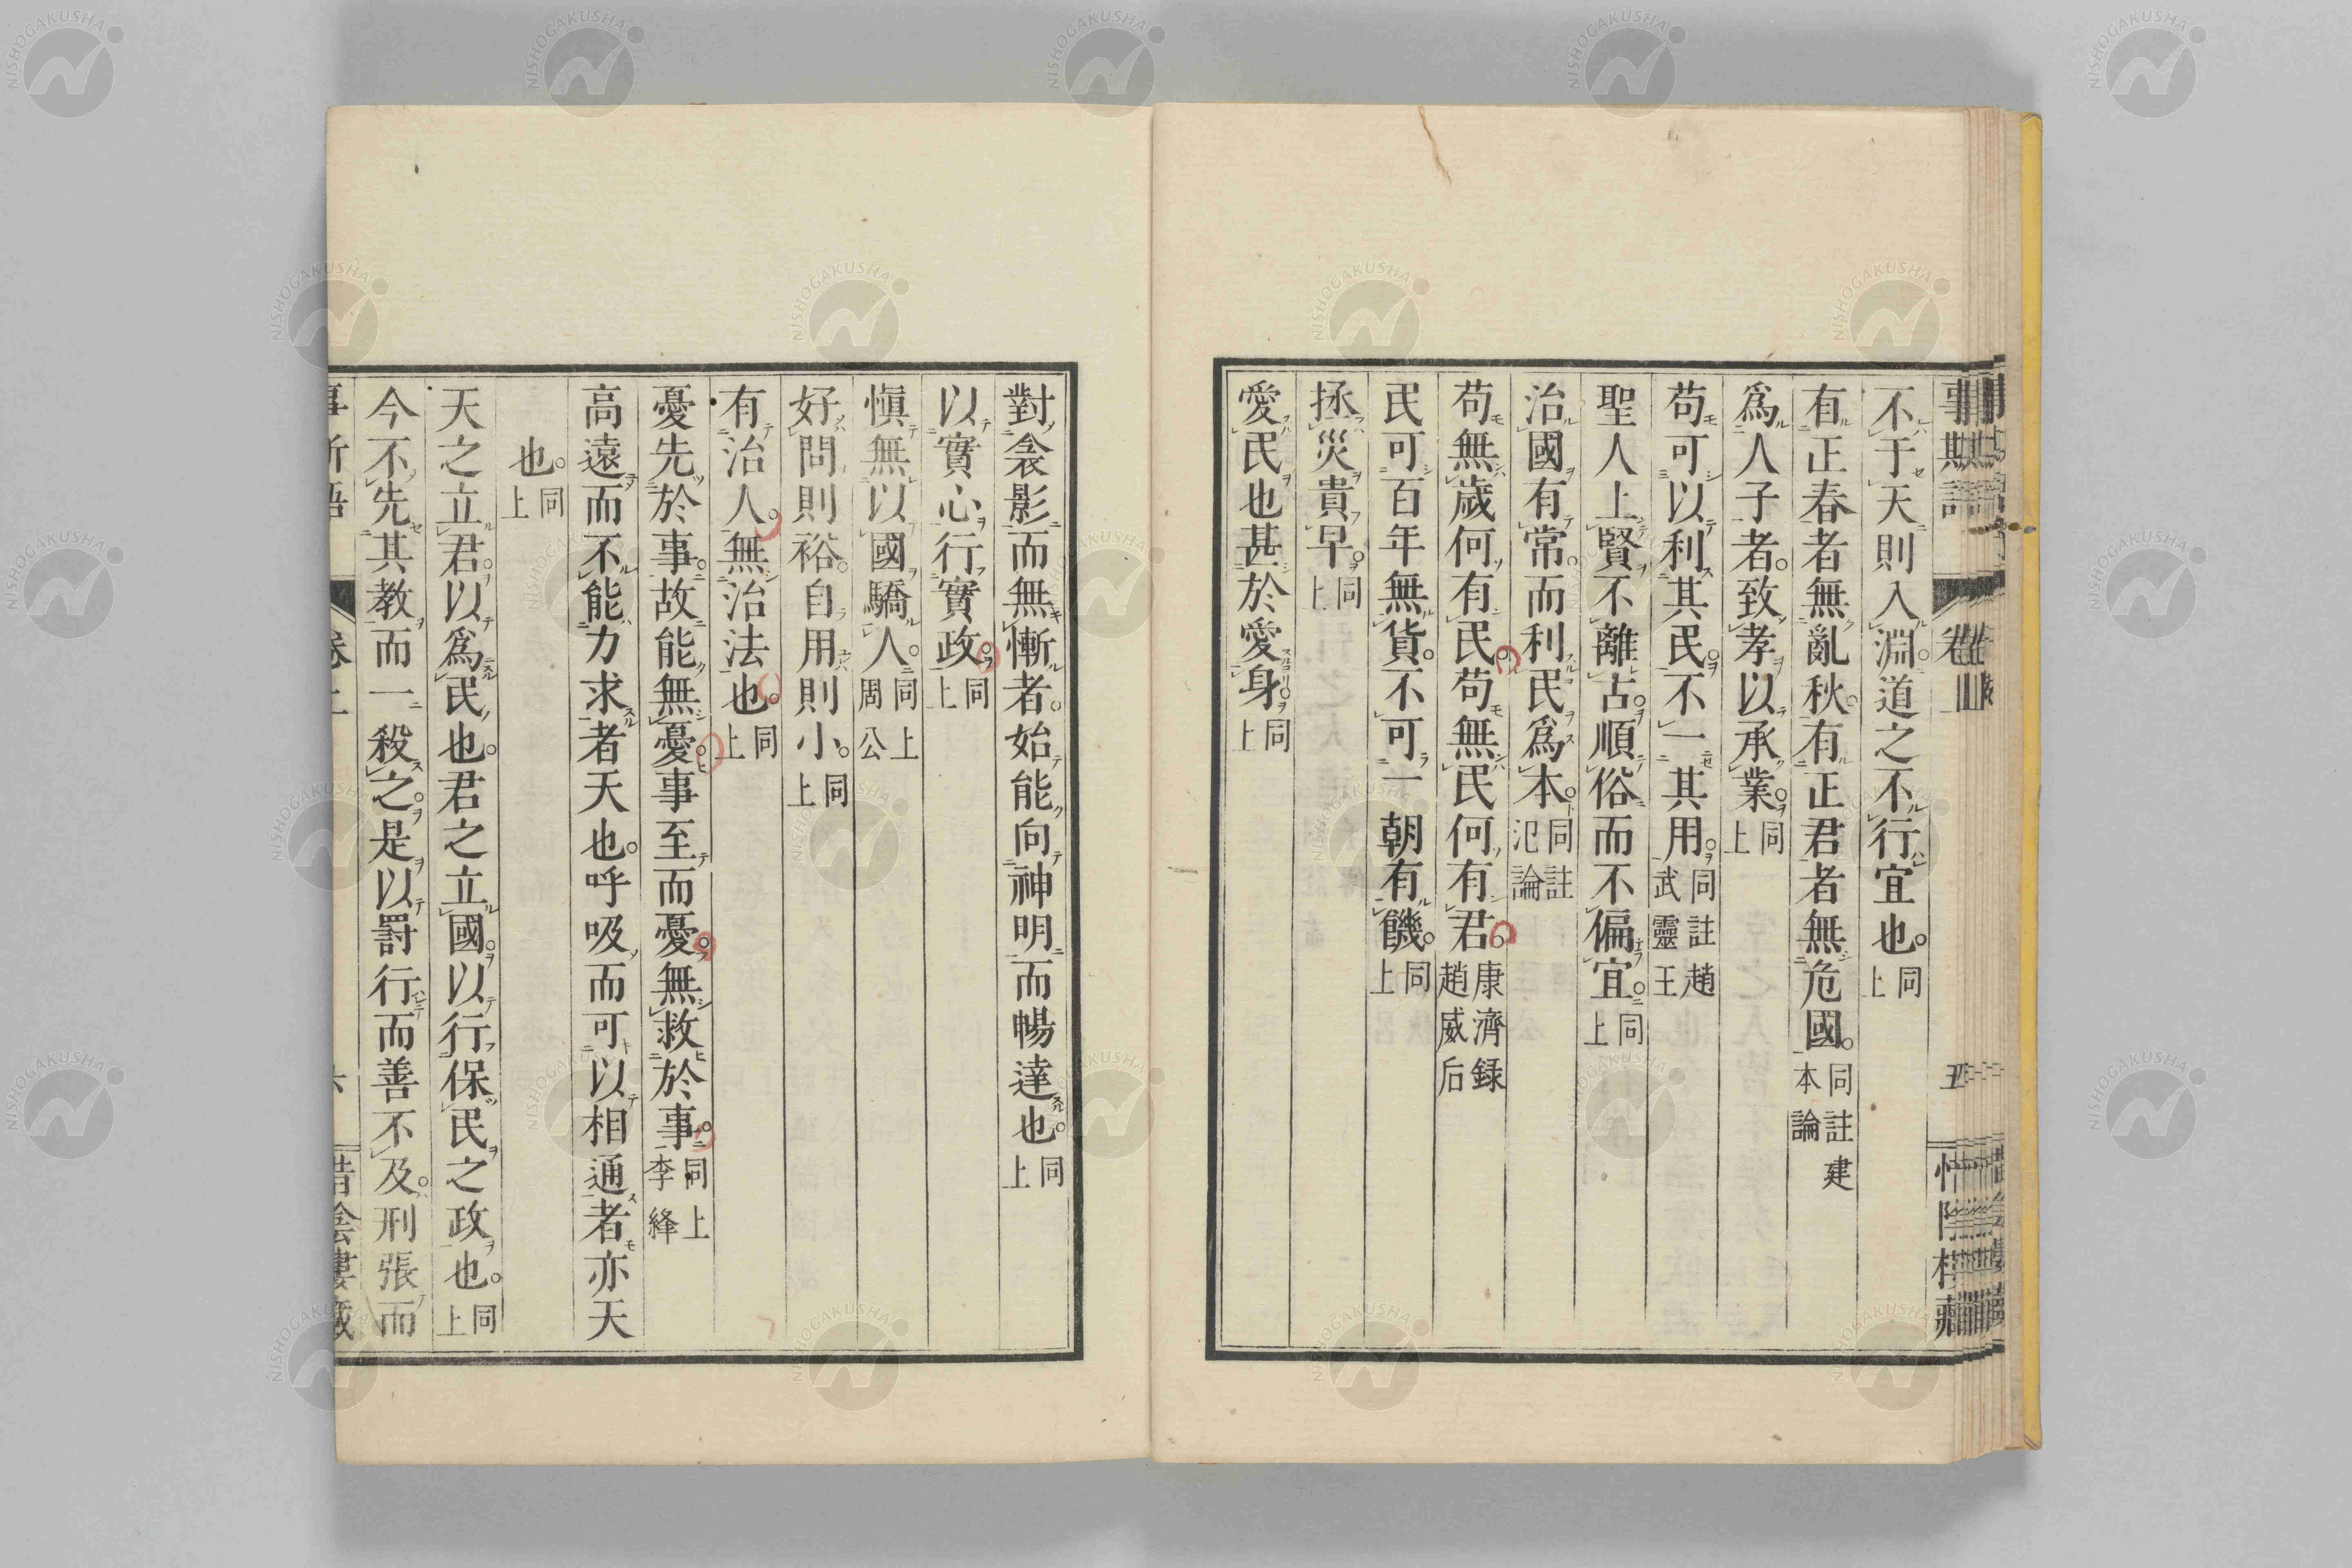 不于天則入淵道之不行宜也。同上
有正春者無亂秋。有正君者無危國。同註建本論
爲人子者。致孝以承業。同上
苟可以利其民。不一其用。同註趙武靈王
聖人上賢不離古。順俗而不偏宜。同上
治國有常。而利民爲本。同註氾論
苟無歲何有民。苟無民何有君。康濟録趙威后
民可百年無貨。不可一朝有饑。同上
拯災貴早。同上
愛民也甚於愛身。同上
對衾影而無慚者。始能向神明而暢達也。同上
以實心行實政。同上
愼無以國驕人。同上周公
好問則裕。自用則小。同上
有治人。無治法也。同上
憂先於事。故能無憂。事至而憂。無救於事。同上李絳
高遠而不能力求者天也。呼吸而可以相通者亦天
也。同上
天之立君。以爲民也。君之立國。以行保民之政也。同上
今不先其教而一殺之。是以罰行而善不及。刑張而
NISHOGAKUSHA